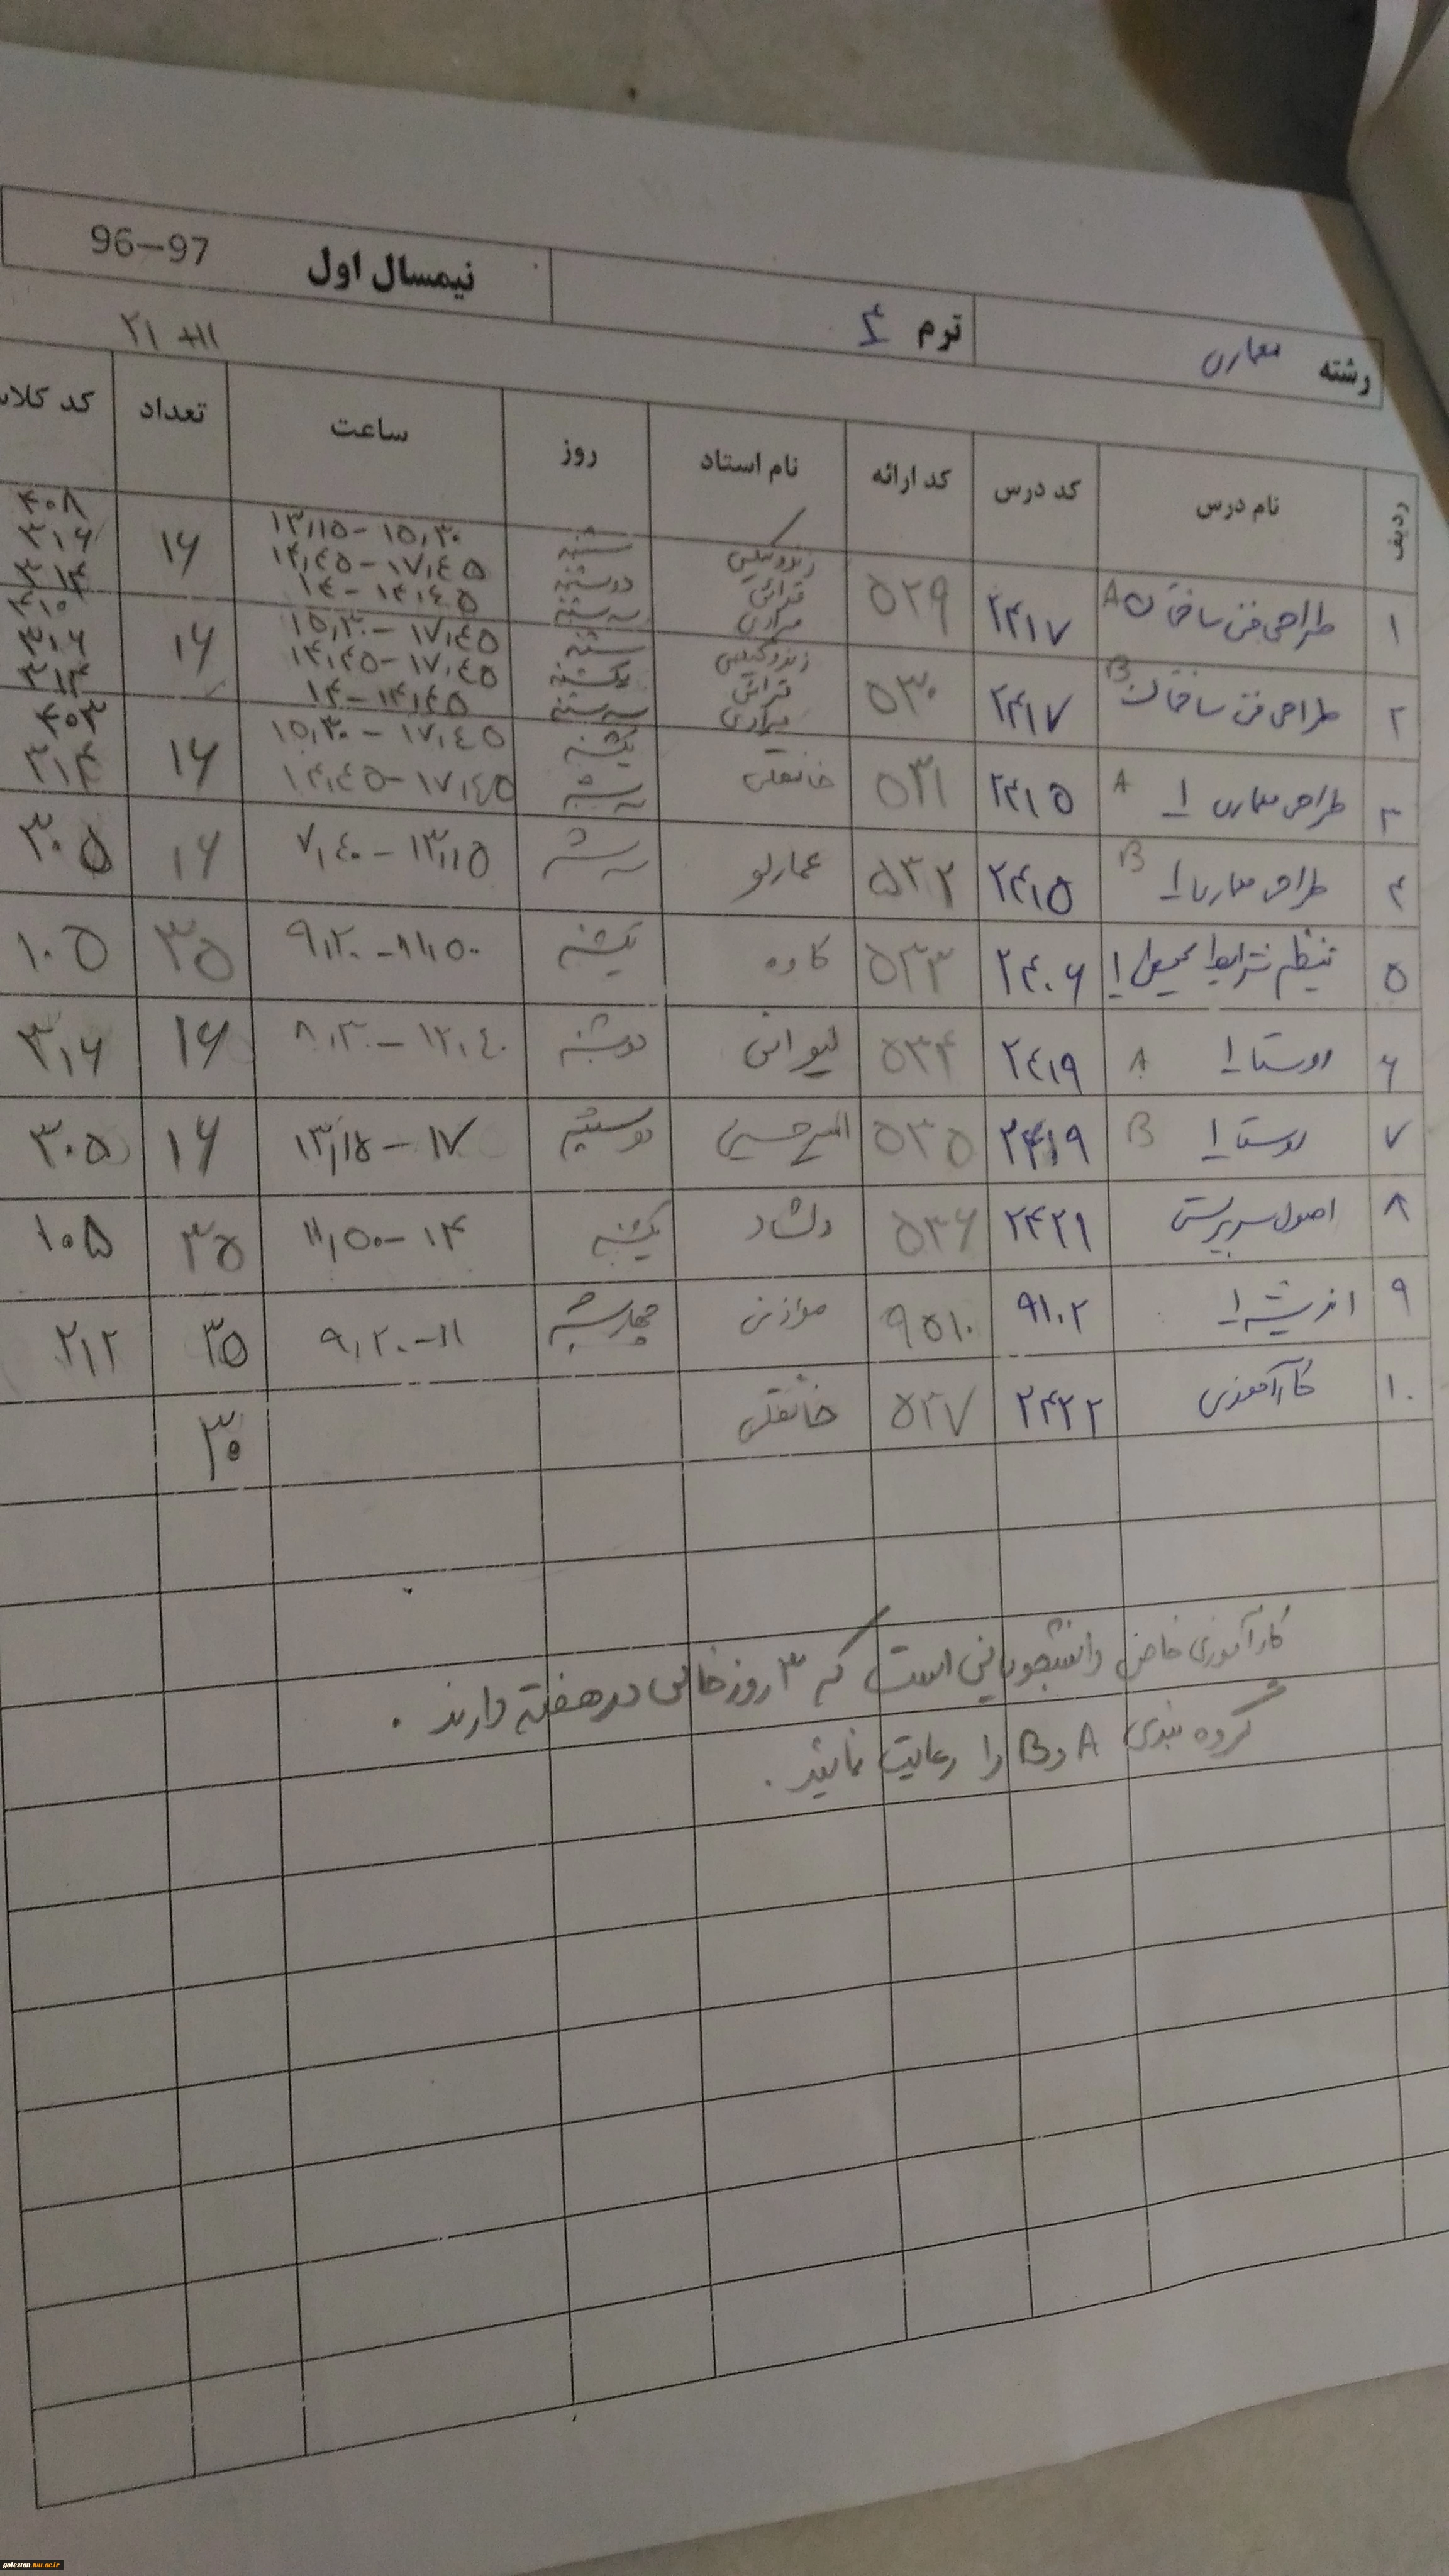 رشته معماری ترم ۴ نیمسال اول 96-97
۲۱ +۱۱
ردیف نام درس کد درس کد ارائه نام استاد روز ساعت تعداد کد کلاس
۱ طراحی فنی ساختمان A ۲۴۱۷ ۵۲۹ ۱۶
شنبه ۱۳,۱۵-۱۵,۳۰ ۴۰۸
دوشنبه ۱۴,۴۵-۱۷,۴۵ ۳۱۶
سه شنبه ۱۴-۱۴,۴۵ ۳۱۴
۲ طراحی فنی ساختمان B ۲۴۱۷ ۵۳۰ ۱۶
شنبه ۱۵,۳۰-۱۷,۴۵ ۴۱۰
یکشنبه ۱۴,۴۵-۱۷,۴۵ ۳۱۶
سه شنبه ۱۴-۱۴,۴۵ ۳۱۴
۳ طراحی معماری ۱ A ۲۴۱۵ ۵۳۱ خانقلی ۱۶
یکشنبه ۱۵,۳۰-۱۷,۴۵ ۴۰۳
سه شنبه ۱۴,۴۵-۱۷,۴۵ ۳۱۴
۴ طراحی معماری ۱ B ۲۴۱۵ ۵۳۲ عمارلو سه شنبه ۷,۴۰-۱۳,۱۵ ۱۶ ۳۰۵
۵ تنظیم شرایط محیطی ۱ ۲۴۰۶ ۵۳۳ کاوه یکشنبه ۹,۲۰-۱۱,۵۰ ۳۵ ۱۰۵
۶ روستا ۱ A ۲۴۱۹ ۵۳۴ لیوانی دوشنبه ۸,۳۰-۱۲,۴۰ ۱۶ ۳۱۶
۷ روستا ۱ B ۲۴۱۹ ۵۳۵ امیرحسینی دوشنبه ۱۳,۱۵-۱۷ ۱۶ ۳۰۵
۸ اصول سرپرستی ۲۴۲۱ ۵۳۶ دلشاد یکشنبه ۱۱,۵۰-۱۴ ۳۵ ۱۰۵
۹ اندیشه ۱ ۹۱۰۲ ۹۵۱۰ موازنی چهارشنبه ۹,۲۰-۱۱ ۳۵ ۲۱۲
۱۰ کارآموزی ۲۴۲۲ ۵۳۷ خانقلی ۳۰
کارآموزی خاص دانشجویانی است که ۳ روز خالی در هفته دارند .
گروه بندی A و B را رعایت نمائید .
golestan.tvu.ac.ir